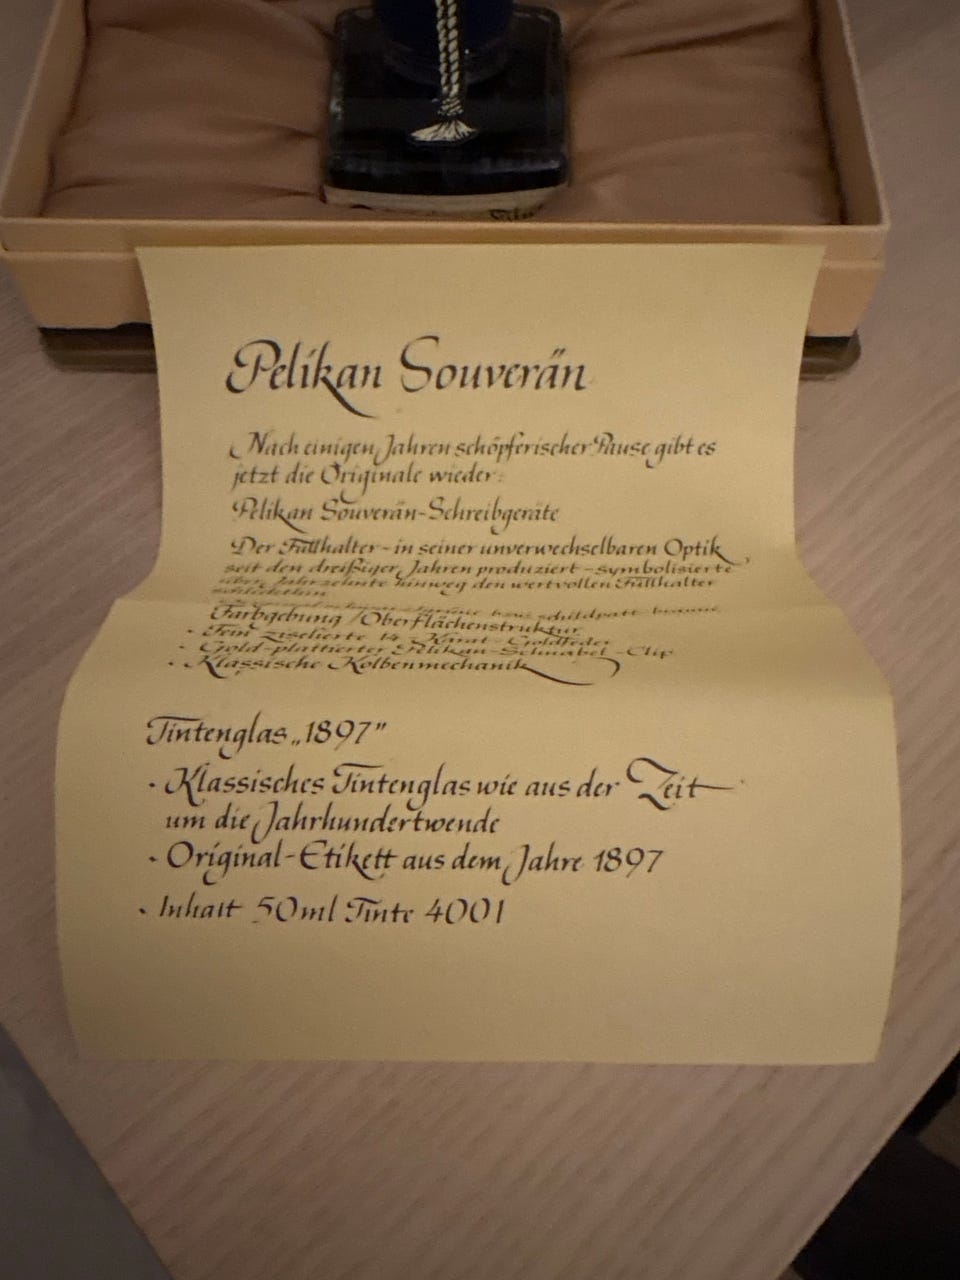 Pelikan Souverän
Nach einigen Jahren schöpferischer Pause gibt es
jetzt die Originale wieder:
Pelikan Souverän-Schreibgeräte
Der Füllhalter - in seiner unverwechselbaren Optik
seit den dreißiger Jahren produziert - symbolisierte
über Jahrzehnte hinweg den wertvollen Füllhalter
schlechthin
schildpatt braune
Farbgebung / Oberflächenstruktur
• Fein ziselierte 14 Karat-Goldfeder
• Gold-plattierter Pelikan-Schnabel-Clip
• Klassische Kolbenmechanik
Tintenglas „1897”
• Klassisches Tintenglas wie aus der Zeit
um die Jahrhundertwende
• Original-Etikett aus dem Jahre 1897
• Inhalt 50ml Tinte 4001